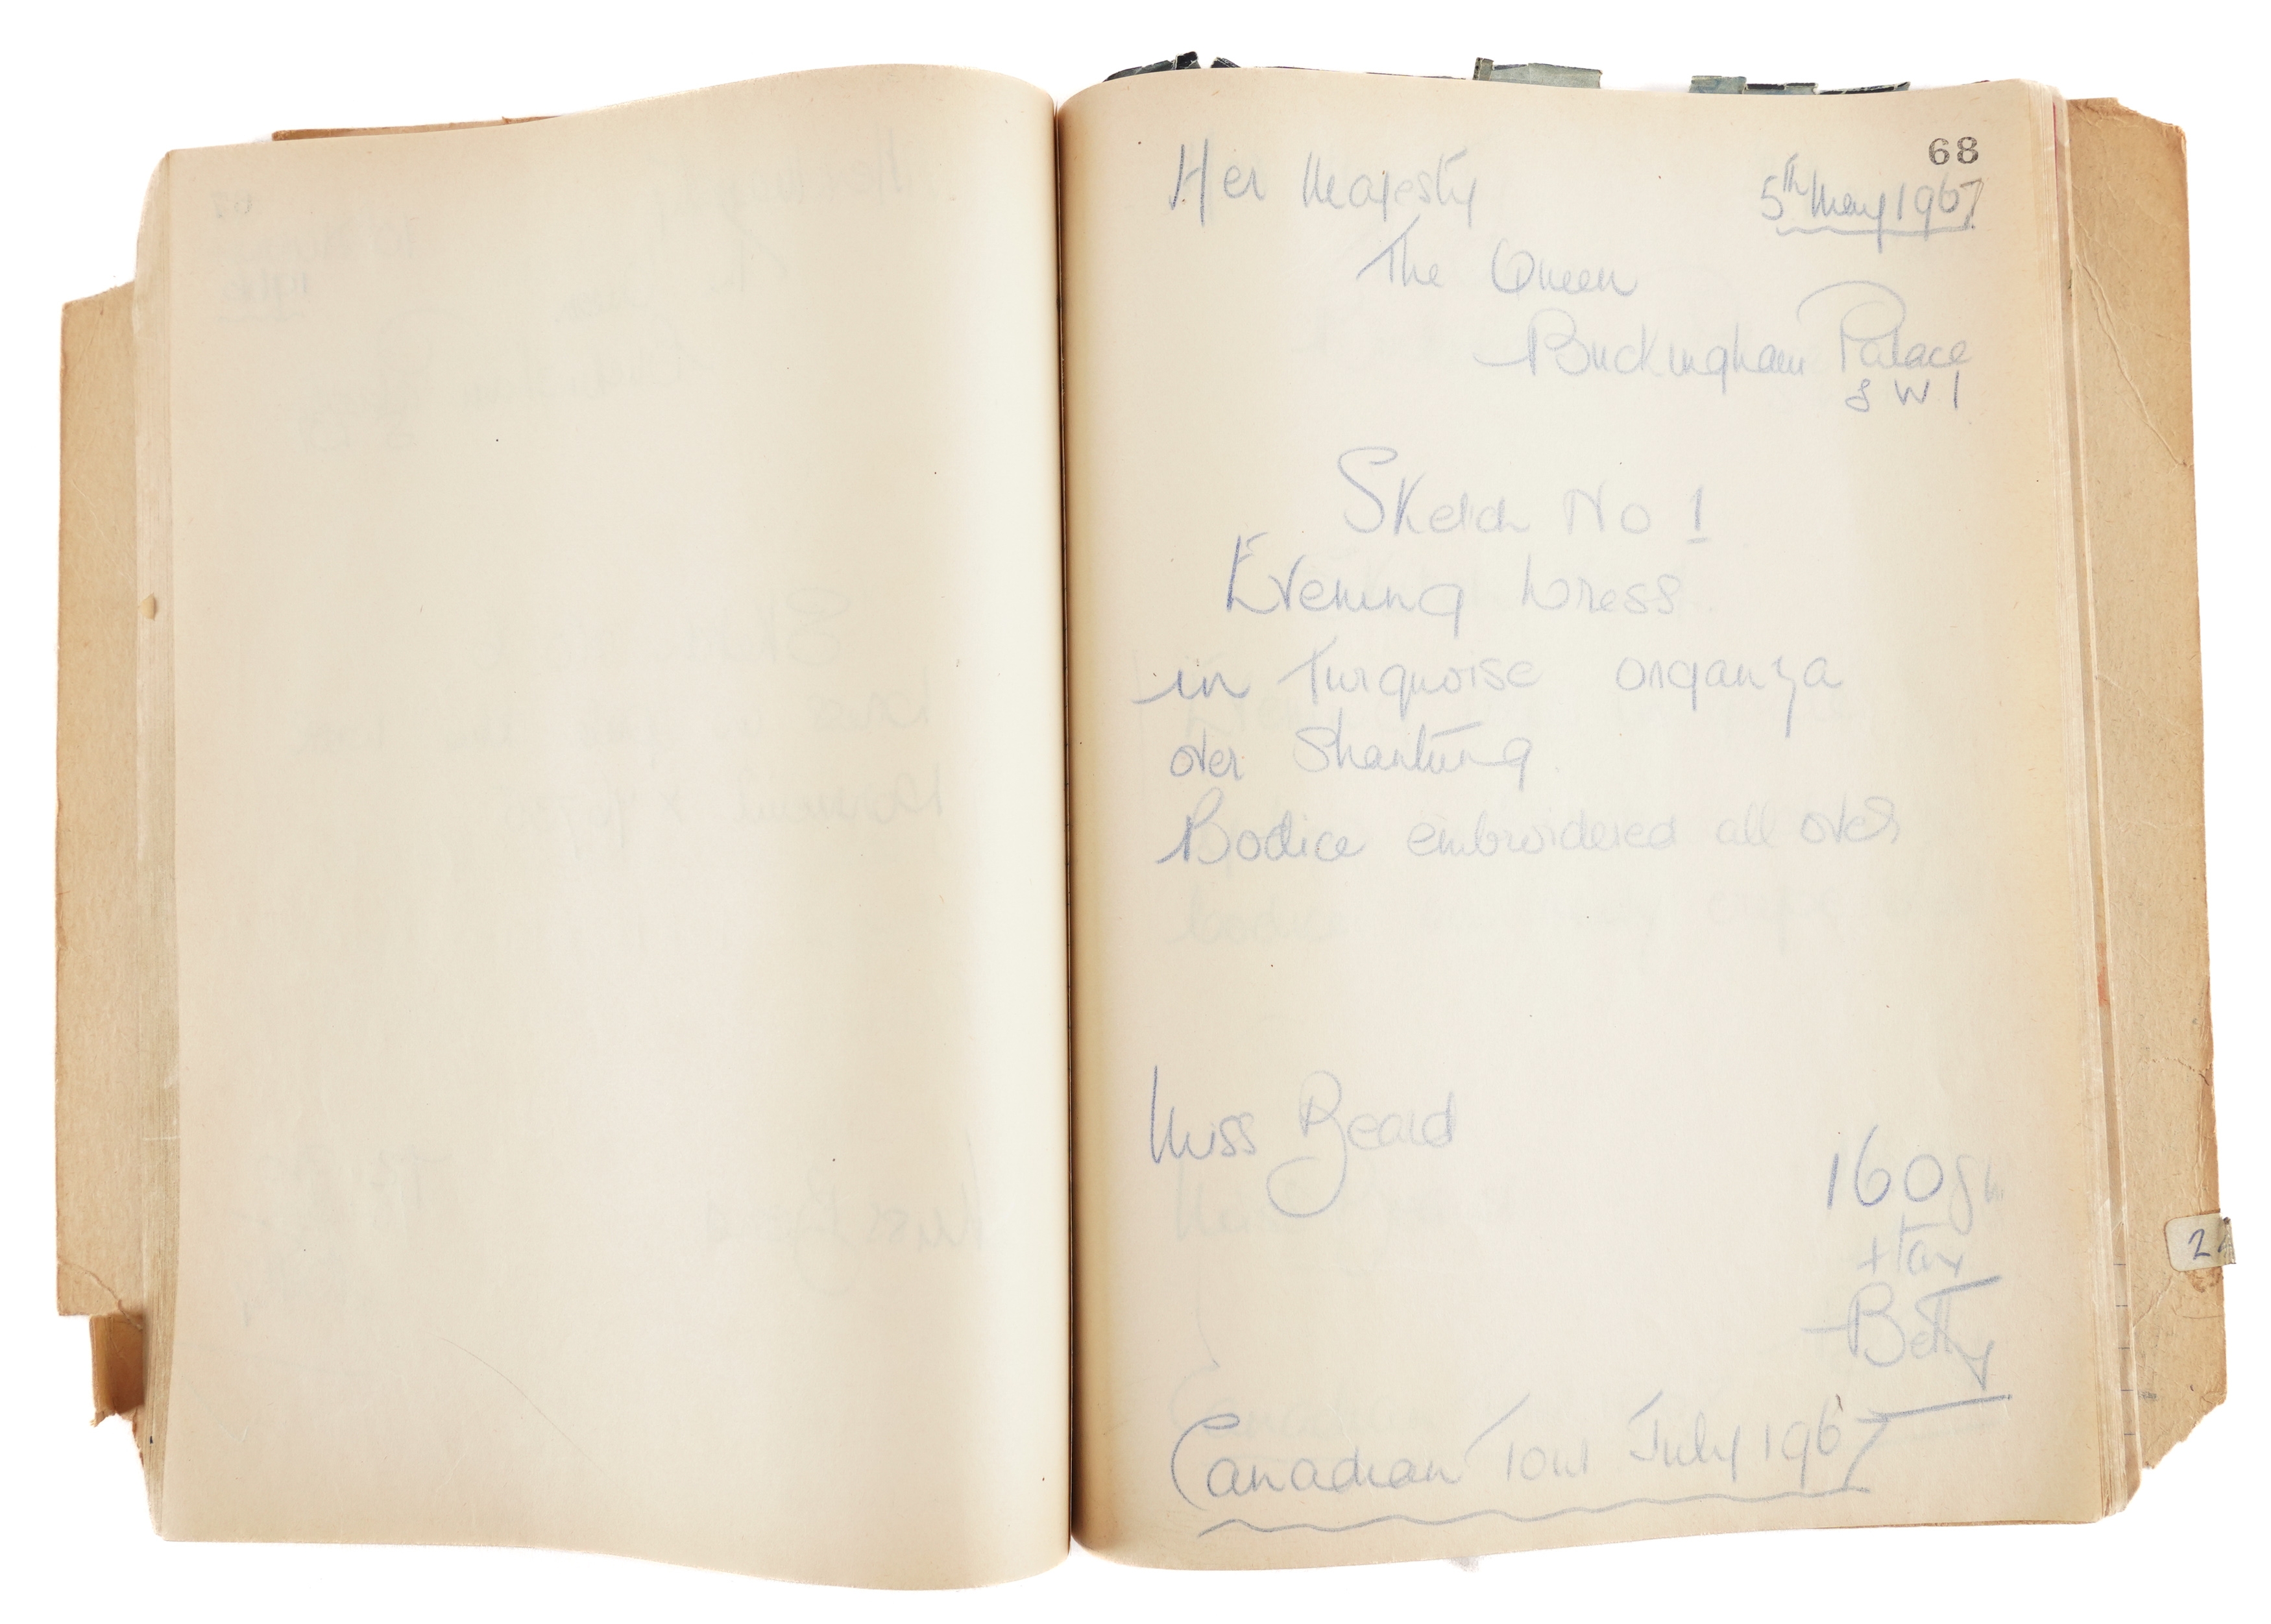 68
Her Majesty
5th May 1967
The Queen
Buckingham Palace
S W 1
Sketch No 1
Evening Dress
in Turquoise organza
over Shantung.
Bodice embroidered all over
Miss Beard
160gns
+ Tax
Betty
Canadian Tour July 1967